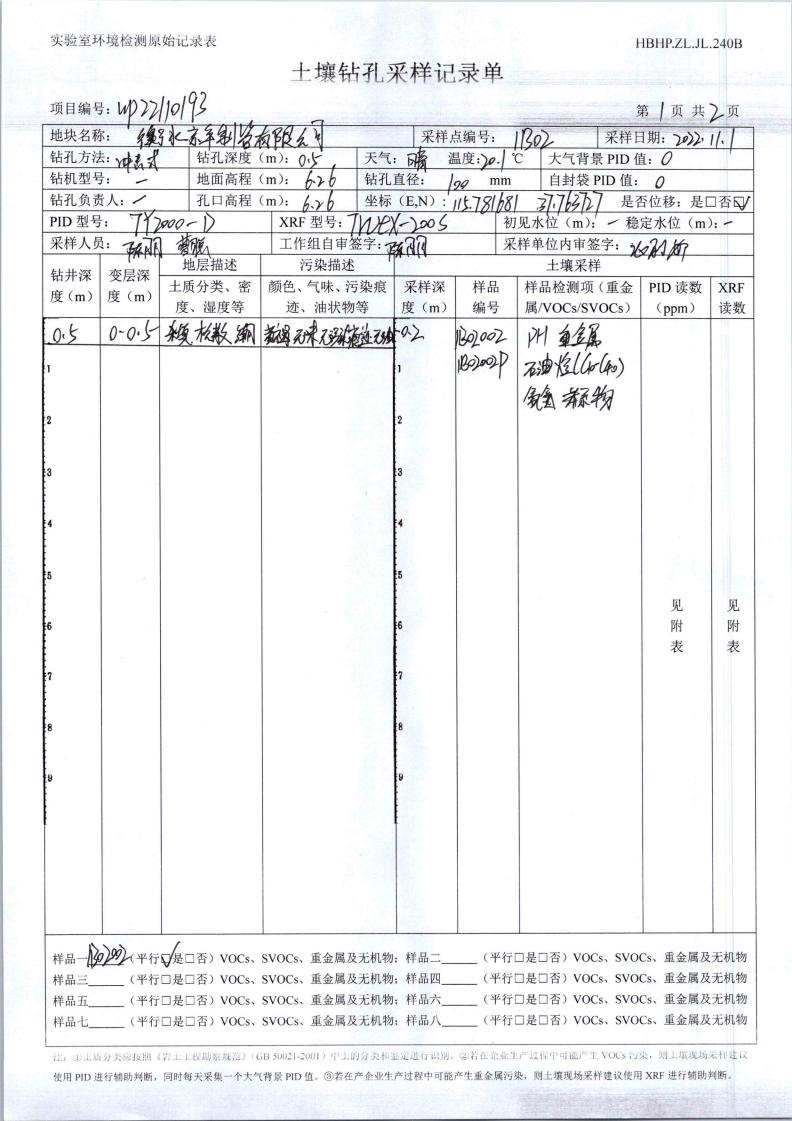 实验室环境检测原始记录表
HBHP.ZL.JL.240B
土壤钻孔采样记录单
项目编号：WP22110193
第 1 页 共 2 页
地块名称： 有限公司 采样点编号：1B02 采样日期：2022.11.1
钻孔方法：冲击式 钻孔深度（m）：0.5 天气：晴 温度：20.1℃ 大气背景 PID 值：0
钻机型号：— 地面高程（m）：6.26 钻孔直径：100 mm 自封袋 PID 值：0
钻孔负责人：— 孔口高程（m）：6.26 坐标（E,N）：115.781681 37.763727 是否位移：是□否☑
PID 型号：TY2000-D XRF 型号：TWEX-200S 初见水位（m）：— 稳定水位（m）：—
采样人员： 工作组自审签字： 采样单位内审签字：
钻井深度（m） 变层深度（m） 地层描述 污染描述 土壤采样
土质分类、密度、湿度等 颜色、气味、污染痕迹、油状物等 采样深度（m） 样品编号 样品检测项（重金属/VOCs/SVOCs） PID 读数（ppm） XRF 读数
0.5 0-0.5 松散 潮 0.2 1B02002 PH 重金属
1B02002P 石油烃(C10-C40)
氨氮
1 1
2 2
3 3
4 4
5 5
6 6
7 7
8 8
9 9
见附表 见附表
样品一1B02002（平行☑是□否）VOCs、SVOCs、重金属及无机物；样品二____（平行□是□否）VOCs、SVOCs、重金属及无机物
样品三____（平行□是□否）VOCs、SVOCs、重金属及无机物；样品四____（平行□是□否）VOCs、SVOCs、重金属及无机物
样品五____（平行□是□否）VOCs、SVOCs、重金属及无机物；样品六____（平行□是□否）VOCs、SVOCs、重金属及无机物
样品七____（平行□是□否）VOCs、SVOCs、重金属及无机物；样品八____（平行□是□否）VOCs、SVOCs、重金属及无机物
注：①土质分类应按照《岩土工程勘察规范》（GB 50021-2001）中土的分类和鉴定进行识别，②若在企业生产过程中可能产生 VOCs 污染，则土壤现场采样建议
使用 PID 进行辅助判断，同时每天采集一个大气背景 PID 值。③若在产企业生产过程中可能产生重金属污染，则土壤现场采样建议使用 XRF 进行辅助判断。